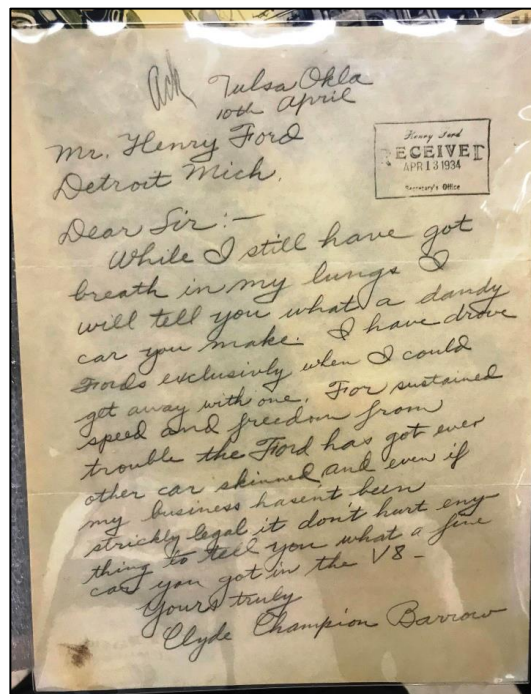 Ack
Tulsa Okla
10th April
Mr. Henry Ford
Detroit Mich.
Henry Ford
RECEIVED
APR 13 1934
Secretary's Office
Dear Sir:-
While I still have got
breath in my lungs I
will tell you what a dandy
car you make. I have drove
Fords exclusivly when I could
get away with one. For sustained
speed and freedom from
trouble the Ford has got ever
other car skinned and even if
my business hasent been
strickly legal it don't hurt eny-
thing to tell you what a fine
car you got in the V8 -
Yours truly
Clyde Champion Barrow